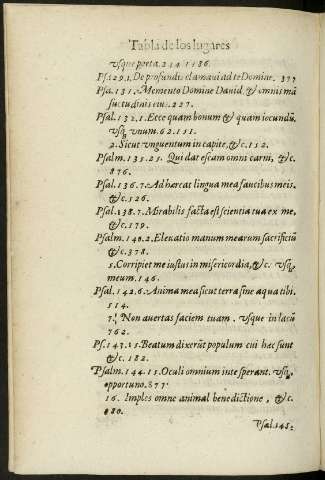 Tabla de los lugares
vsque porta. 214. 1186.
Ps. 129.1. De profundis clamaui ad te Domine. 377
Psa. 131. Memento Domine Dauid, & omnis mã
suetudinis eiu. 227.
Psal. 132.1. Ecce quam bonum & quam iocundũ.
vsq; vnum. 62. 111.
2. Sicut vnguentum in capite, &c. 112.
Psalm. 135.25. Qui dat escam omni carni, &c.
876.
Psal. 136.7. Adhæreat lingua mea faucibus meis.
&c. 126.
Psal. 138.7. Mirabilis facta est scientia tua ex me,
&c. 179.
Psalm. 140.2. Eleuatio manum mearum sacrificiũ
&c. 378.
5. Corripiet me iustus in misericordia, &c. vsq;
meum. 146.
Psal. 142.6. Anima mea sicut terra sine aqua tibi.
514.
7. Non auertas faciem tuam. vsque in lacũ
762.
Ps. 143.15. Beatum dixerũt populum cui hæc sunt
&c. 182.
Psalm. 144.15. Oculi omnium in te sperant. vsq;
opportuno. 877.
16. Imples omne animal benedictione, &c.
880.
Psal. 145.